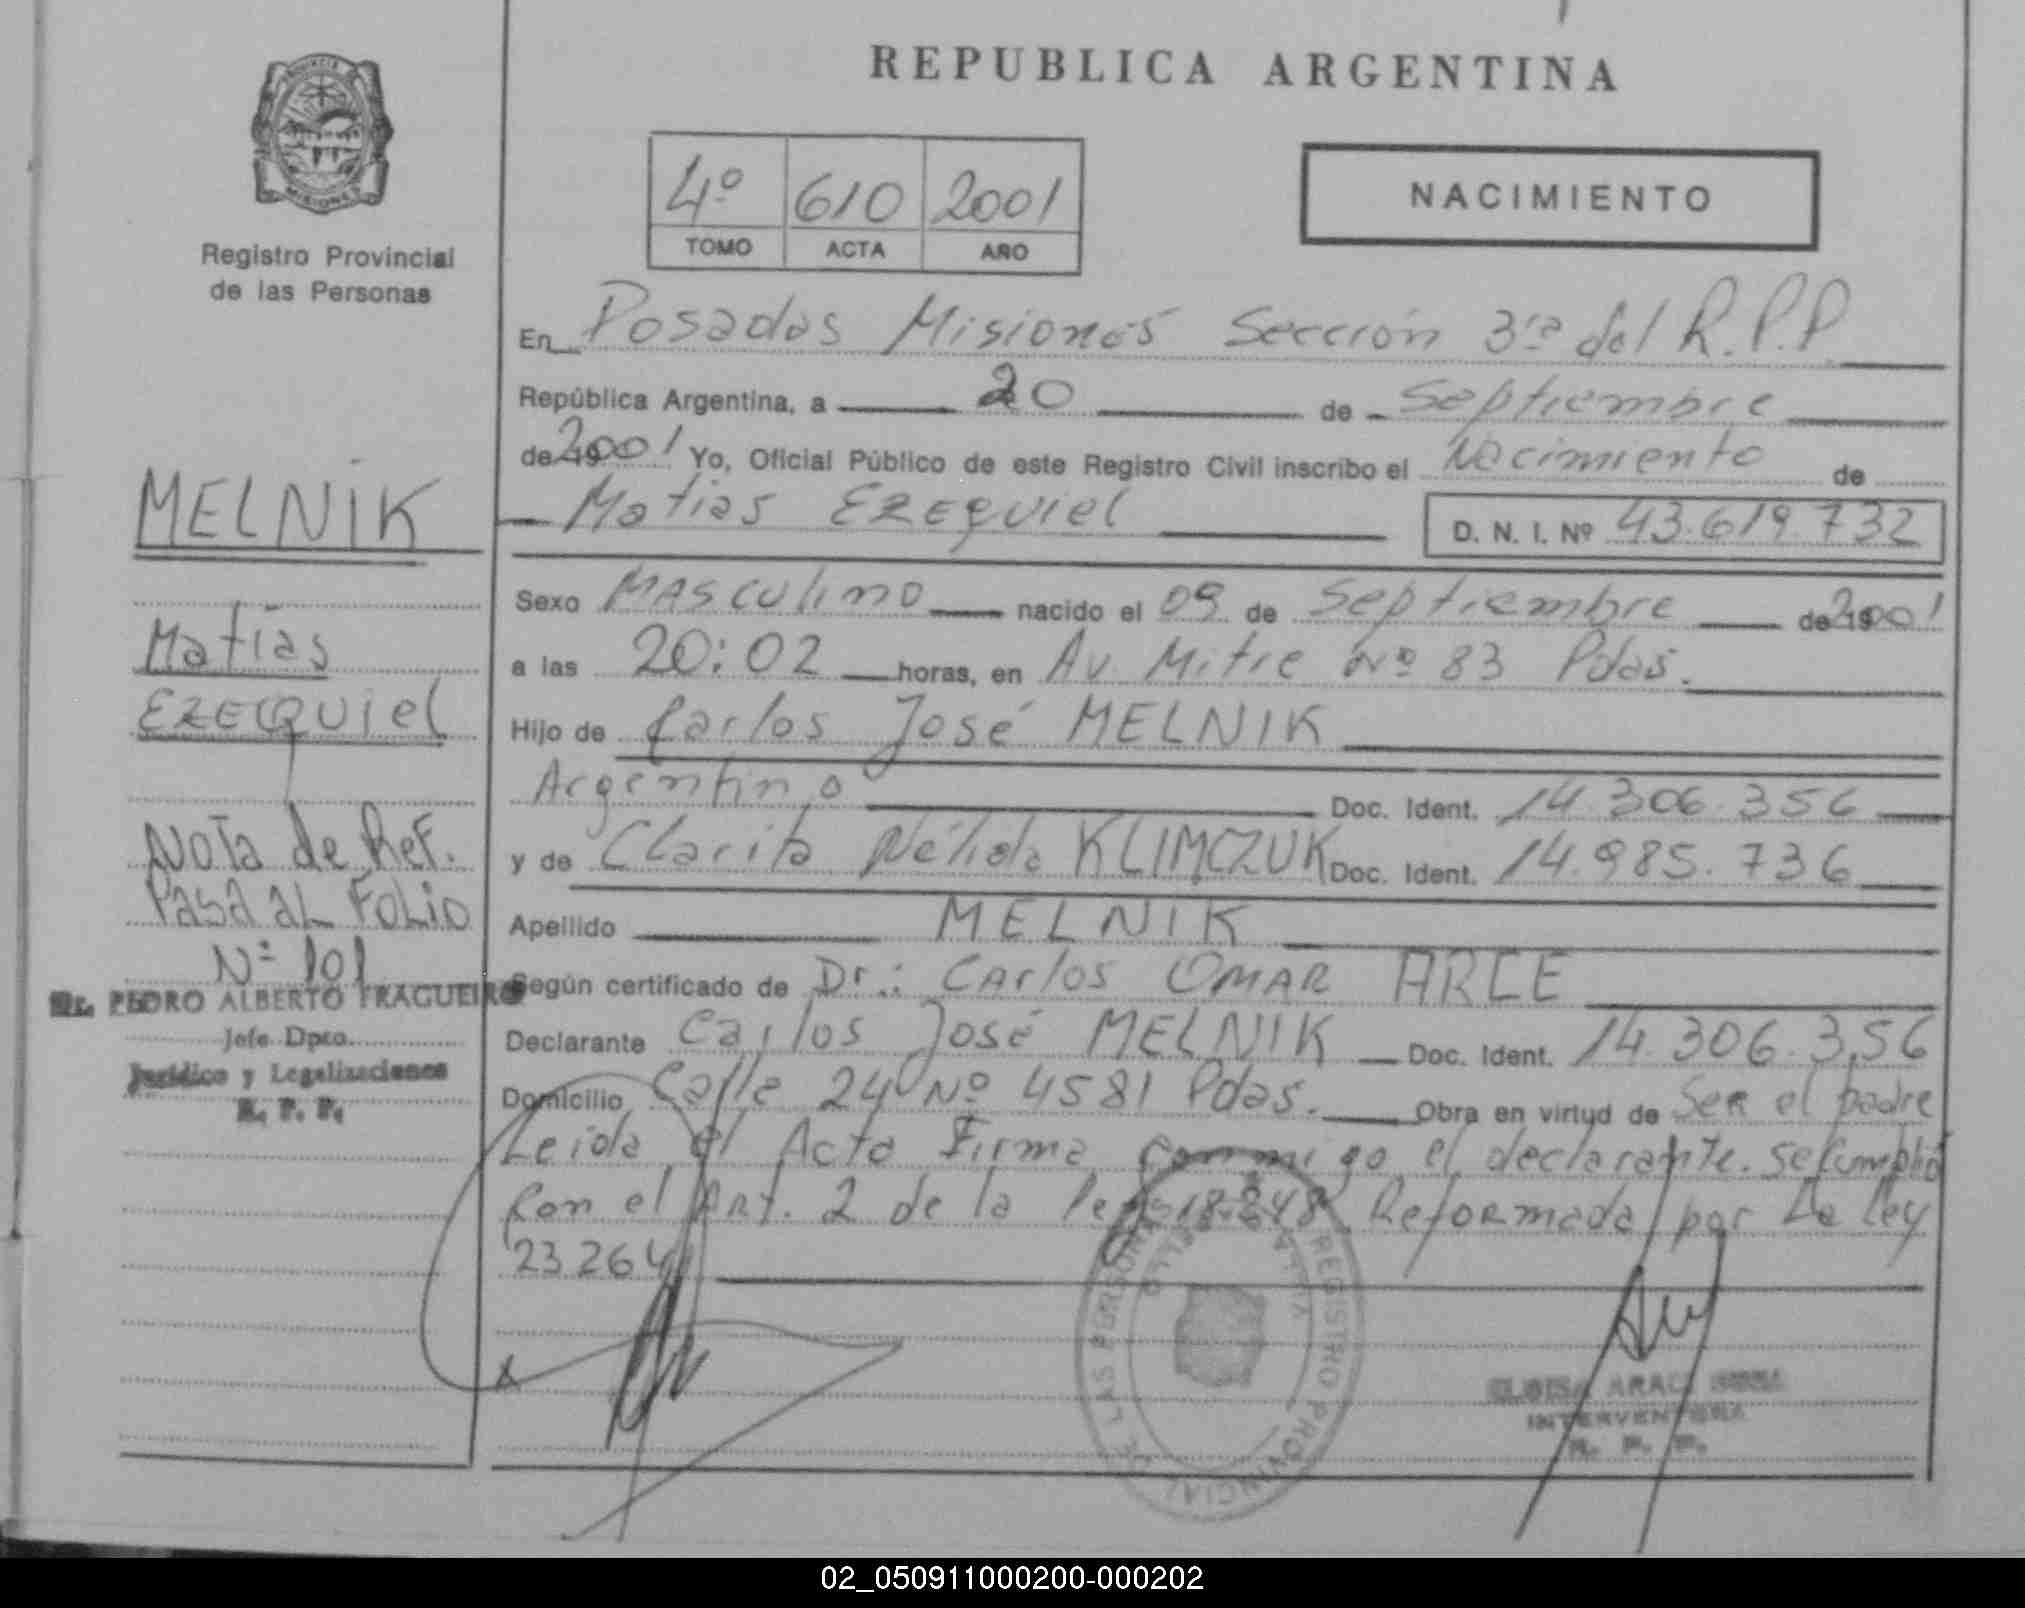 PROVINCIA DE
MISIONES
Registro Provincial
de las Personas
MELNIK
Matías
EZEQUIEL
Nota de Ref.
Pasa al Folio
Nº 101
Dr. PEDRO ALBERTO FRAGUEIRO
Jefe Dpto.
Jurídico y Legalizaciones
R. P. P.
REPUBLICA ARGENTINA
4º 610 2001
TOMO ACTA AÑO
NACIMIENTO
En Posadas Misiones Sección 3ra del R.P.P.
República Argentina, a 20 de Septiembre
de 2001 Yo, Oficial Público de este Registro Civil inscribo el Nacimiento de
Matias EZEQUIEL D. N. I. Nº 43.619.732
Sexo MASCULINO nacido el 09 de Septiembre de 2001
a las 20:02 horas, en Av. Mitre Nº 83 Pdas.
Hijo de Carlos José MELNIK
Argentino Doc. Ident. 14.306.356
y de Clarita Nélida KLIMCZUK Doc. Ident. 14.985.736
Apellido MELNIK
Según certificado de Dr.: Carlos OMAR ARCE
Declarante Carlos José MELNIK Doc. Ident. 14.306.356
Domicilio Calle 24 Nº 4581 Pdas. Obra en virtud de Ser el padre
Leida el Acta Firma conmigo el declarante. Se Cumplió
Con el Art. 2 de la ley 18.248 Reformada por La Ley
23264
REGISTRO PROVINCIAL DE LAS PERSONAS
INTERVENTORA
R. P. P.
02_050911000200-000202